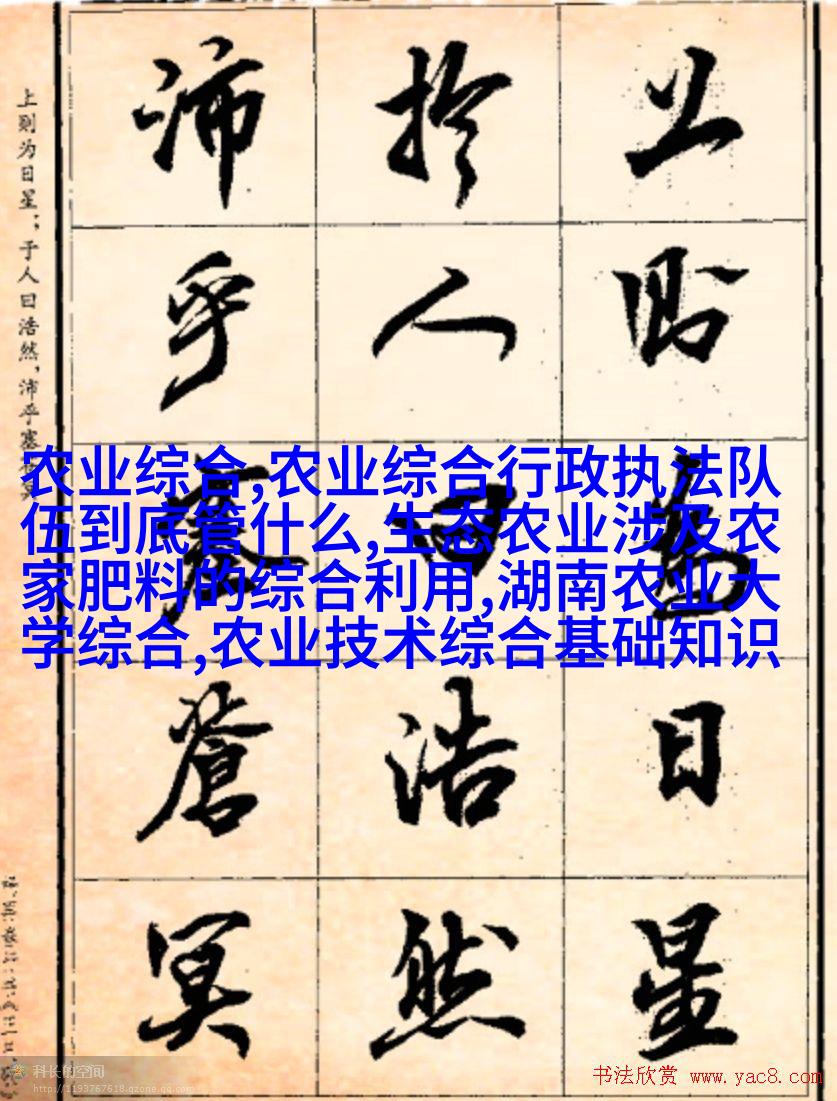 上则为日星；于人曰浩然，沛乎塞
上则为日星
於人曰浩然
沛乎塞蒼冥
农业综合,农业综合行政执法队
伍到底管什么,生态农业涉及农
家肥料的综合利用,湖南农业大
学综合,农业技术综合基础知识
科长的空间
http://1193767618.qzone.qq.com
书法欣赏 www.yac8.com